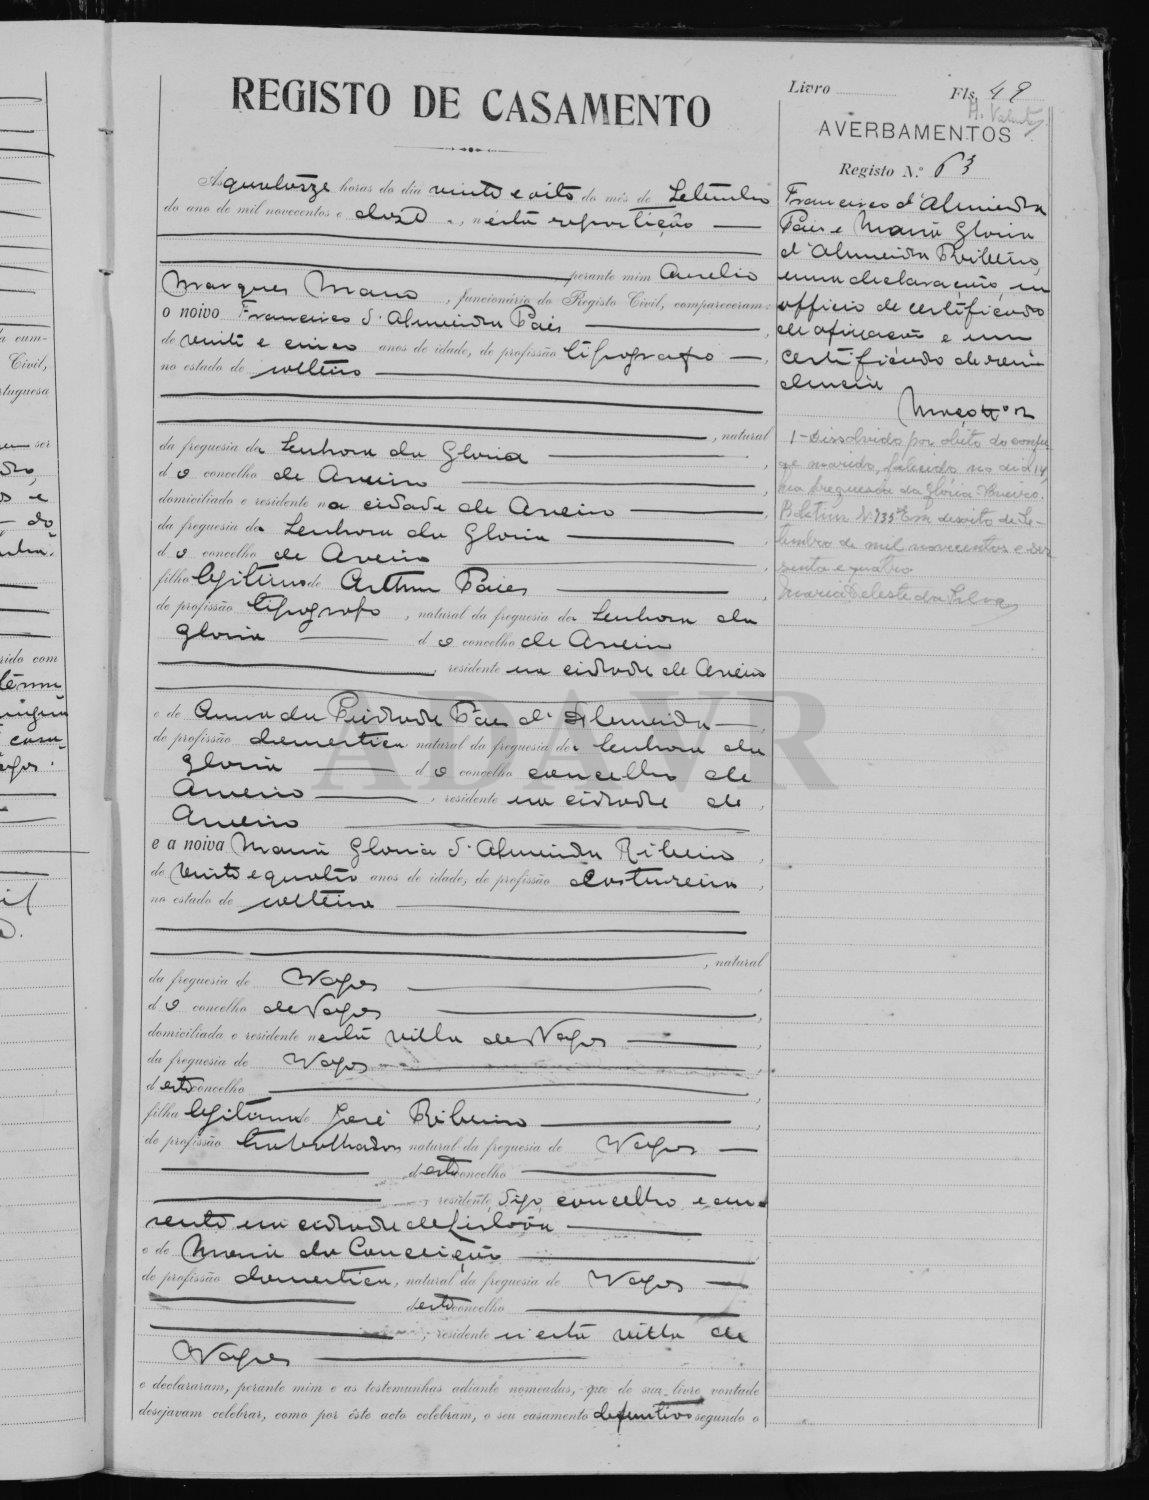 REGISTO DE CASAMENTO
Às quatorze horas do dia vinte e oito do mês de Setembro
do ano de mil novecentos e doze, n'esta repartição
perante mim Aurelio
Marques Mano, funcionário do Registo Civil, compareceram:
o noivo Francisco d'Almeida Pais
de vinte e cinco anos de idade, de profissão tipografo
no estado de solteiro
, natural
da freguesia da Senhora da Gloria
do concelho de Aveiro
domiciliado e residente na cidade de Aveiro
da freguesia da Senhora da Gloria
do concelho de Aveiro
filho legitimo de Arthur Paes
de profissão tipografo, natural da freguesia da Senhora da
Gloria do concelho de Aveiro
, residente na cidade de Aveiro
e de Anna da Piedade Paes d'Almeida
de profissão domestica natural da freguesia da Senhora da
Gloria do concelho concelho de
Aveiro, residente na cidade de
Aveiro
e a noiva Maria Gloria d'Almeida Ribeiro
de vinte e quatro anos de idade, de profissão costureira
no estado de solteira
, natural
da freguesia de Vagos
do concelho de Vagos
domiciliada e residente n'esta villa de Vagos
da freguesia de Vagos
d'este concelho
filha legitima de José Ribeiro
de profissão trabalhador natural da freguesia de Vagos
d'este concelho
, residente, digo, concelho e au-
sente na cidade de Lisboa
e de Maria da Conceição
de profissão domestica, natural da freguesia de Vagos
d'este concelho
, residente n'esta villa de
Vagos
e declararam, perante mim e as testemunhas adiante nomeadas, que de sua livre vontade
desejavam celebrar, como por êste acto celebram, o seu casamento definitivo segundo o
Livro Fls. 49
AVERBAMENTOS
Registo N.º 63
Francisco d'Almeida
Pais e Maria Gloria
d'Almeida Ribeiro,
uma declaração, um
officio de certificado
de afixação e um
certificado de resi-
dencia
Maço nº 2
1 - Dissolvido por obito do conju-
ge marido, falecido no dia 14
na freguesia da Glória - Aveiro.
Boletim Nº 735 Em dezoito de Se-
tembro de mil novecentos e ses-
senta e quatro
Maria Celeste da Silva
ADAVR
da cum-
Civil,
rtuguesa
ser
do
rido com